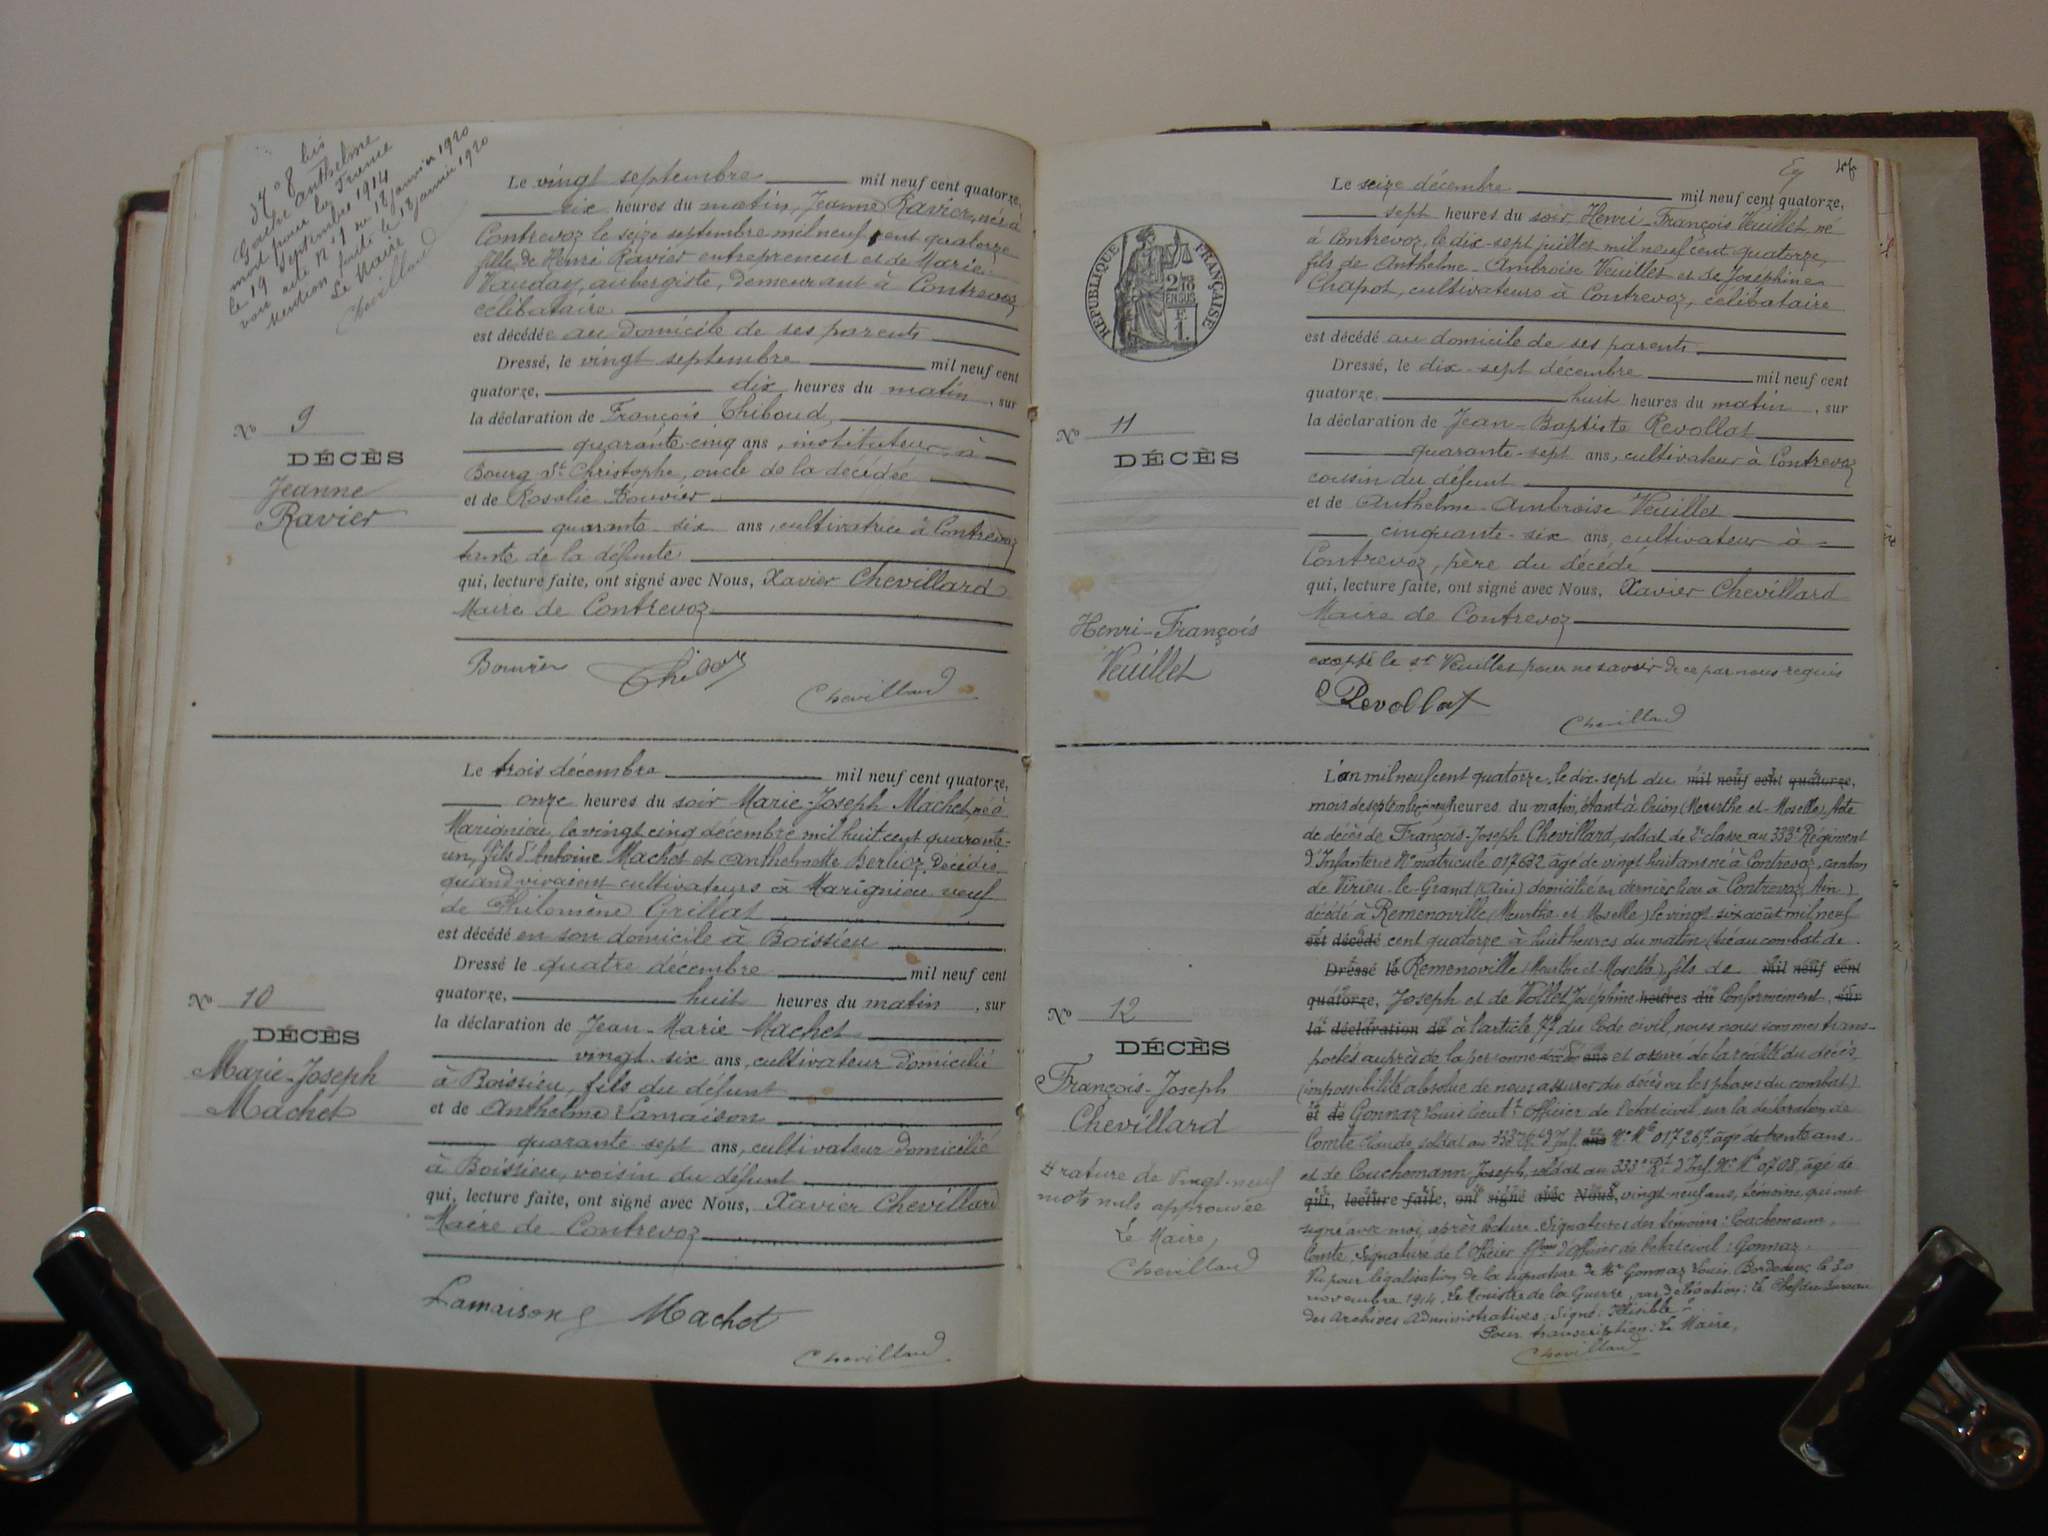 N° 8 bis
Goubet Anthelme
mort pour la France
le 19 Septembre 1914
voir acte N° 1 du 18 janvier 1920
Mention faite le 18 janvier 1920
Le Maire
Chevillard
Le vingt septembre mil neuf cent quatorze,
six heures du matin, Jeanne Ravier, née à
Contrevoz le seize septembre mil neuf cent quatorze
fille de Henri Ravier entrepreneur et de Marie
Vauday, aubergiste, demeurant à Contrevoz
célibataire
est décédée au domicile de ses parents
Dressé, le vingt septembre mil neuf cent
quatorze, dix heures du matin, sur
la déclaration de François Thiboud,
quarante-cinq ans, instituteur, à
Bourg St Christophe, oncle de la décédée
et de Rosalie Bouvier
quarante-six ans, cultivatrice à Contrevoz
tante de la défunte
qui, lecture faite, ont signé avec Nous, Xavier Chevillard
Maire de Contrevoz
N° 9
DÉCÈS
Jeanne
Ravier
Bouvier
Chevillard
Le trois décembre mil neuf cent quatorze,
onze heures du soir Marie-Joseph Machet, né à
Marignieu, le vingt cinq décembre mil huit cent quarante-
un, fils d'Antoine Machet et Anthelmette Berlioz, décédés
quand vivaient cultivateurs à Marignieu veuf
de Philomène Grillat
est décédé en son domicile à Boissieu
Dressé le quatre décembre mil neuf cent
quatorze, huit heures du matin, sur
la déclaration de Jean-Marie Machet
vingt-six ans, cultivateur domicilié
à Boissieu, fils du défunt
et de Anthelme Lamaison
quarante sept ans, cultivateur domicilié
à Boissieu, voisin du défunt
qui, lecture faite, ont signé avec Nous, Xavier Chevillard
Maire de Contrevoz
N° 10
DÉCÈS
Marie-Joseph
Machet
Lamaison Machet
Chevillard
RÉPUBLIQUE FRANÇAISE
2/10
EN SUS
F.
1.
Le seize décembre mil neuf cent quatorze,
sept heures du soir Henri-François Veuillet, né
à Contrevoz, le dix-sept juillet mil neuf cent quatorze,
fils de Anthelme-Ambroise Veuillet et de Joséphine
Chapot, cultivateurs à Contrevoz, célibataire
est décédé au domicile de ses parents
Dressé, le dix-sept décembre mil neuf cent
quatorze, huit heures du matin, sur
la déclaration de Jean-Baptiste Revollat
quarante-sept ans, cultivateur à Contrevoz
cousin du défunt
et de Anthelme-Ambroise Veuillet
cinquante-six ans, cultivateur à
Contrevoz, père du décédé
qui, lecture faite, ont signé avec Nous, Xavier Chevillard
Maire de Contrevoz
excepté le sr Veuillet pour ne savoir de ce par nous requis
N° 11
DÉCÈS
Henri-François
Veuillet
Revollat
Chevillard
L'an mil neuf cent quatorze, le dix-sept du mil neuf cent quatorze,
mois de septembre à neuf heures du matin, étant à Crion (Meurthe-et-Moselle), Acte
de décès de François-Joseph Chevillard, soldat de 2e classe au 333e Régiment
d'Infanterie No matricule 017632 âgé de vingt huit ans né à Contrevoz, canton
de Virieu-le-Grand (Ain) domicilié en dernier lieu à Contrevoz (Ain)
décédé à Remenoville (Meurthe et Moselle) le vingt six août mil neuf
est décédé cent quatorze à huit heures du matin, tué au combat de
Dressé le Remenoville (Meurthe et Moselle) fils de mil neuf cent
quatorze, Joseph et de Vollet Joséphine heures du Conformément, sur
la déclaration de à l'article 77 du Code civil, nous nous sommes trans-
portés auprès de la personne décédée ans et assuré de la réalité du décès
(impossibilité absolue de nous assurer du décès vu les phases du combat)
et de Gonnaz Louis lieutt Officier de l'état civil, sur la déclaration de
Comte Claude, soldat au 333e d'Inf. ans No Mle 017267 âgé de trente ans
et de Couchemann Joseph, soldat au 333e Rt d'Inf. No Mle 0708, âgé de
qui, lecture faite, ont signé avec Nous, vingt-neuf ans, témoins qui ont
signé avec moi, après lecture. Signatures des témoins: Couchemann,
Comte. Signature de l'Officier d'officier de l'état civil: Gonnaz.
Vu pour légalisation de la signature de Mr Gonnaz Louis. Bordeaux, le 30
novembre 1914. Le Ministre de la Guerre, par délégation: le Chef du bureau
des Archives Administratives: Signé: Illisible
Pour transcription: Le Maire,
Chevillard
N° 12
DÉCÈS
François-Joseph
Chevillard
rature de vingt-neuf
mots nuls approuvée
Le Maire,
Chevillard